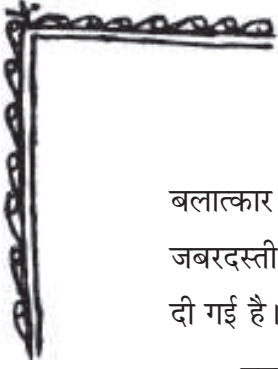 बलात्कार
जबरदस्ती
दी गई है।